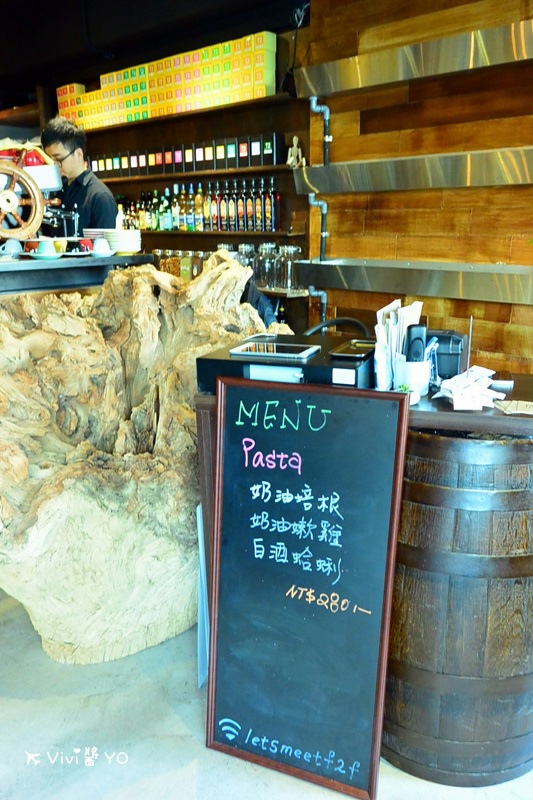 MENU
Pasta
奶油培根
奶油嫩雞
白酒蛤蜊
NT$280.一
letsmeetf2f
Vivi醬YO